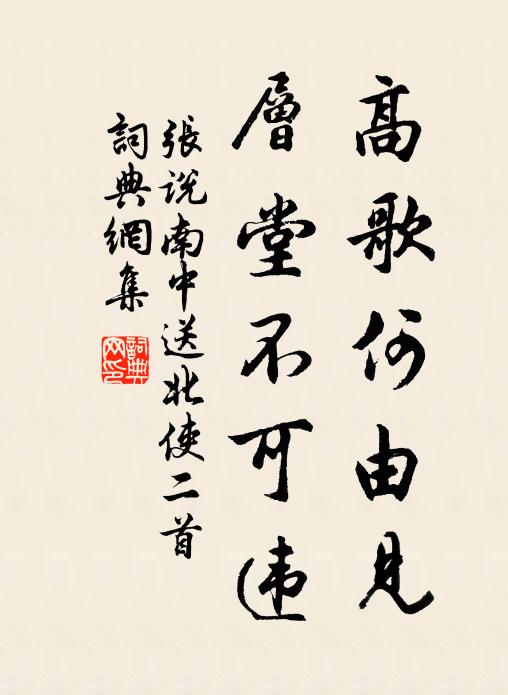 高歌何由見
層堂不可违
張説南中送北使二首
詞典網集
詞典网印